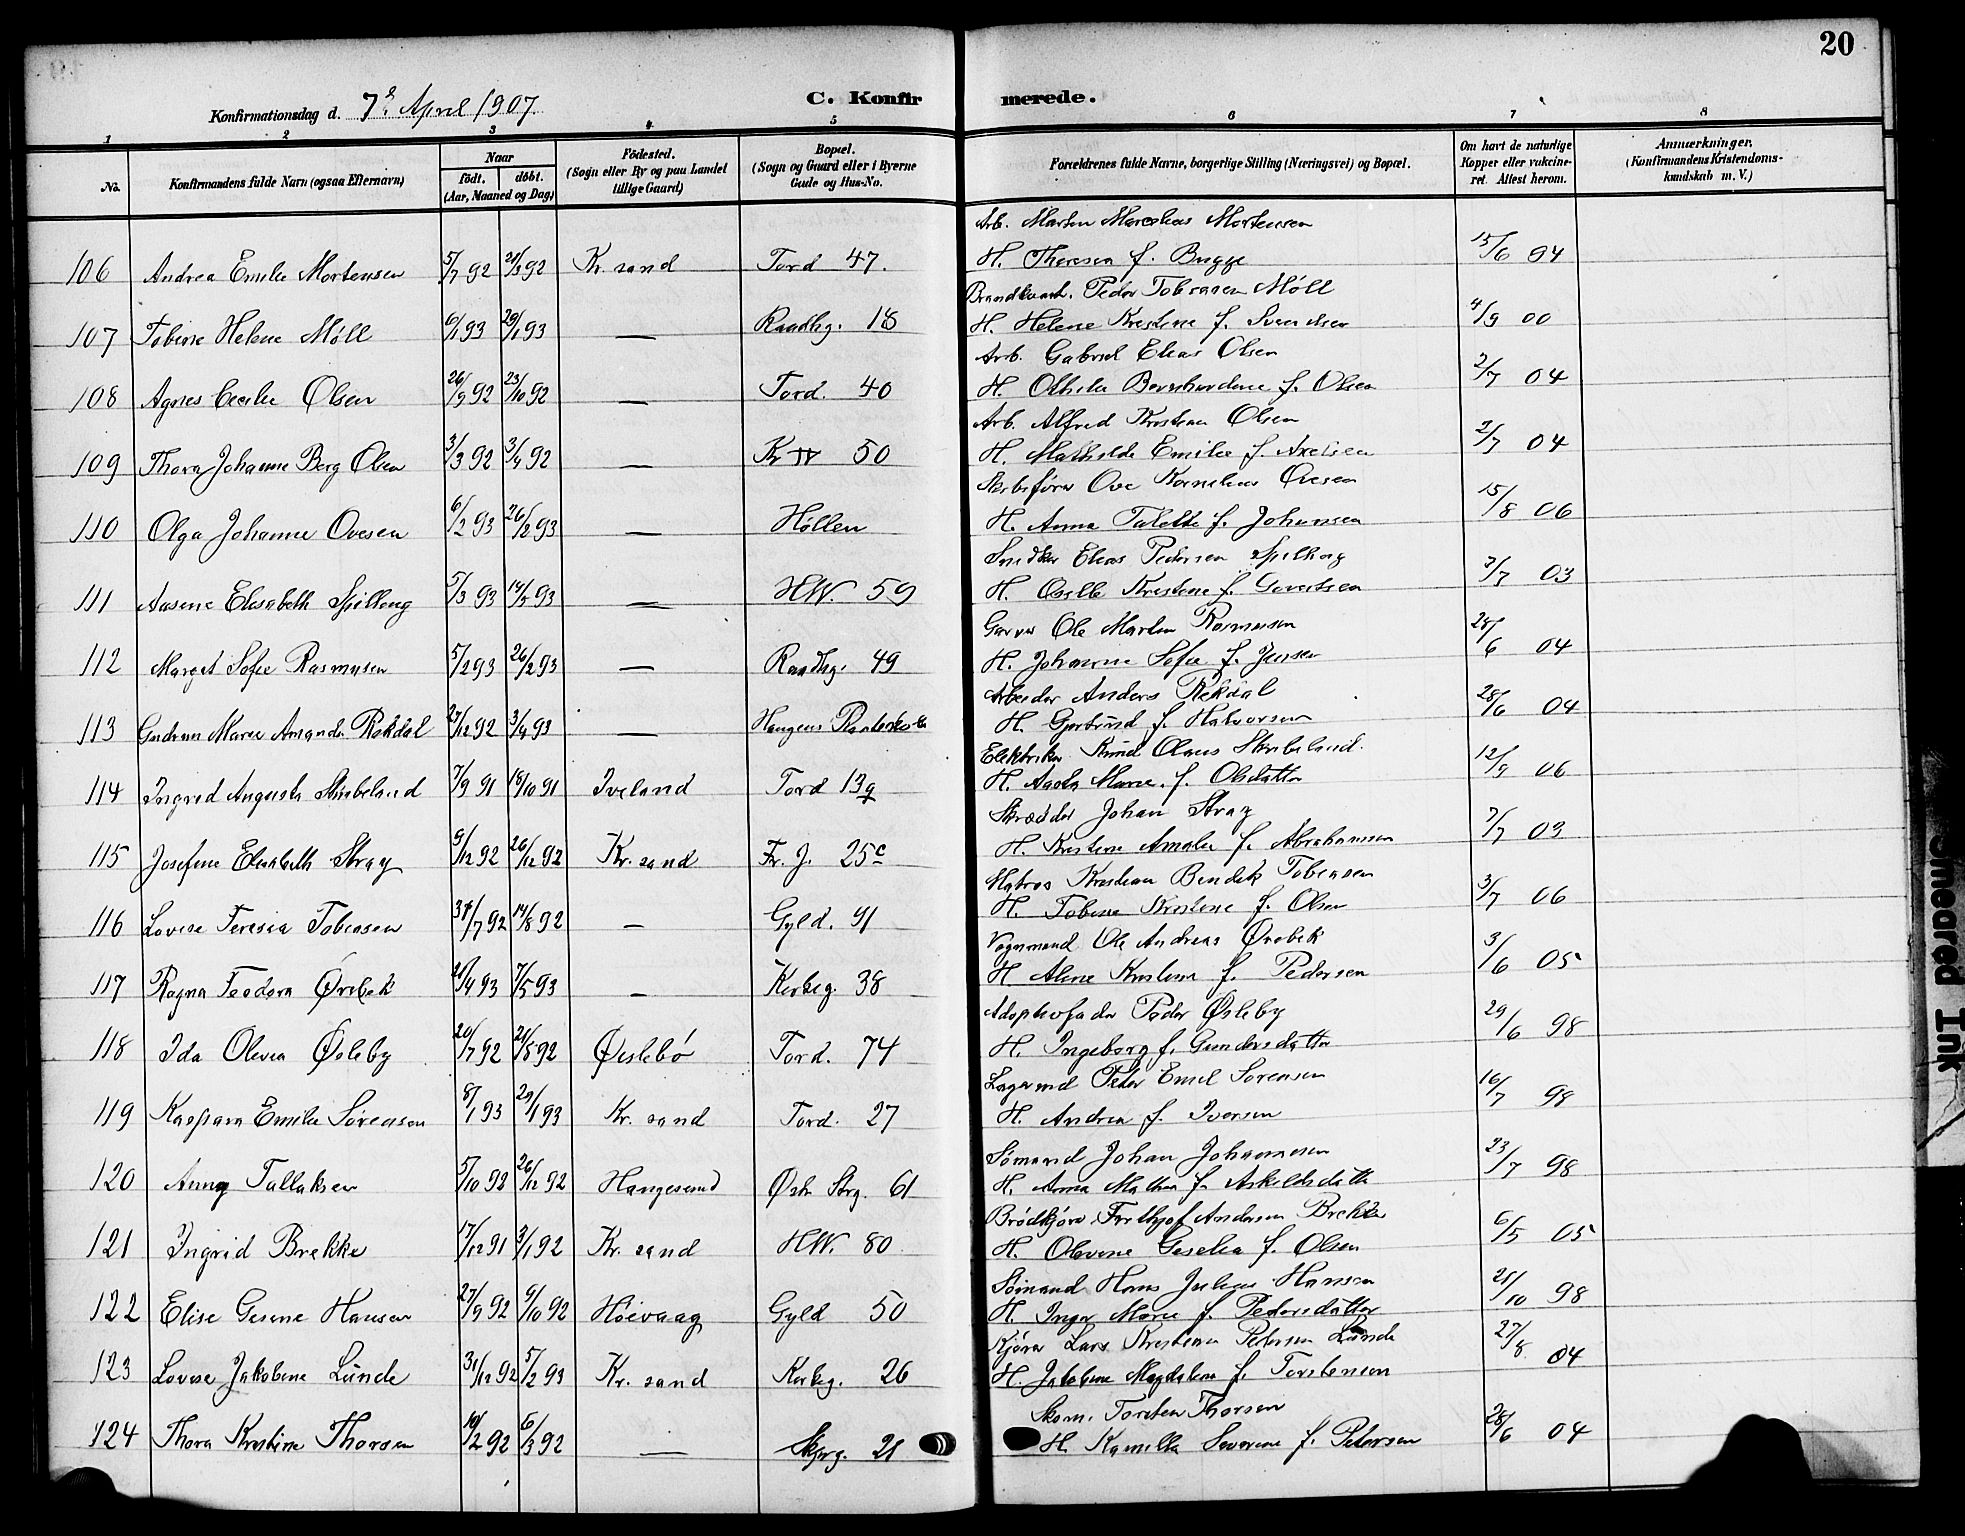 20
Konfirmationsdag d. 7de April 1907.
C. Konfirmerede.
1 2 3 4 5 6 7 8
No. Konfirmandens fulde Navn (ogsaa Efternavn) Naar født. døbt. (Aar, Maaned og Dag) Fødested. (Sogn eller By og paa Landet tillige Gaard) Bopæl. (Sogn og Gaard eller i Byerne Gade og Hus-No. Forældrenes fulde Navne, borgerlige Stilling (Næringsvei) og Bopæl. Om havt de naturlige Kopper eller vakcineret. Attest herom. Anmærkninger. (Konfirmandens Kristendomskundskab m. V.)
Arb. Martin Mortensen
106 Andrea Emilie Mortensen 5/7 92 92 Kr.sand Tord 47. H. Theresia f. Bugge 15/6 04
Peder Tobiasen Møll
107 Tobine Helene Møll 6/1 93 29/1 93 — Raadhg. 18 H. Helene Kristine f. Svendsen 4/9 00
Arb. Gabriel Elias Olsen
108 Agnes Cecilie Olsen 26/9 92 23/10 92 — Tord. 40 H. Othilie Bernhardine f. Olsen 2/7 04
Arb. Alfred Kristian Olsen
109 Thora Johanne Berg Olsen 3/3 92 3/4 92 — 50 H. Mathilde Emilie f. Axelsen 2/7 04
Skibsfører Ove Kornelius Ovesen
110 Olga Johanne Ovesen 6/2 93 26/2 93 — Høllen H. Anna Talette f. Johansen 15/8 06
Snedker Elias Pedersen Spilling
111 Aasene Elisabeth Spilling 5/3 93 14/5 93 — H.W. 59 H. Kristine f. Govertsen 3/7 03
Garver Ole Martin Rasmusen
112 Margit Sofie Rasmusen 5/2 93 26/2 93 — Raadhg. 49 H. Johanne Sofie f. Jensen 28/6 04
Arbeider Anders Rekdal
113 Gudrun Marie Amanda Rekdal 27/12 92 3/4 93 — H. Gjertrud f. Halvorsen 28/6 04
Elektriker Knud Olaus Skribeland.
114 Ingrid Augusta Skribeland 7/9 91 18/10 91 Iveland Tord 13g H. Aasta Marie f. Olsdatter 12/9 06
Skrædder Johan Stray
115 Josefine Elisabeth Stray 9/12 92 26/12 92 Kr.sand Fr. J. 25c H. Kristine Amalie f. Abrahamsen 7/7 03
Matros Kristian Bendik Tobiasen
116 Lovise Teresia Tobiasen 31/7 92 14/8 92 — Gyld. 91 H. Tobine Kristine f. Olsen 3/7 06
Vognmand Ole Andreas Ørebek
117 Ragna Teodora Ørebek 4 93 7/5 93 — Kirkeg. 38 H. Aline Kristine f. Pedersen 3/6 05
Adoptivfader Peder Øsleby
118 Ida Olivia Øsleby 20/7 92 21/8 92 Øislebø Tord. 74 H. Ingeborg f. Gundersdatter 29/6 98
Peder Emil Sørensen
119 Kaspara Emilie Sørensen 8/1 93 29/1 93 Kr.sand Tord. 27 H. Andrea f. Iversen 16/7 98
Sømand Johan Johannesen
120 Anna Tallaksen 5/10 92 26/12 92 Haugesund Østr Strg. 61 H. Anna Mathea f. Askildsdatter 23/7 98
Brødkjører Frithjof Andersen Brekke
121 Ingrid Brekke 17/12 91 3/1 92 Kr.sand H.W. 80 H. Olevine Geselia f. Olsen 6/5 05
Sømand Hans Julius Hansen
122 Elise Gesine Hansen 27/9 92 9/10 92 Høievaag Gyld 50 H. Inger Marie f. Pedersdatter 28/10 98
Kjører Lars Kristian Petersen Lunde
123 Lovise Jakobine Lunde 31/12 92 5/2 93 Kr.sand Kirkeg. 26 H. Jakobine Magdalene f. Torstensen 27/8 04
Skom. Torsten Thorsen
124 Thora Kristine Thorsen 19/2 92 6/3 92 — 21 H. Kamilla Severine f. Petersen 28/6 04
Smeared Ink